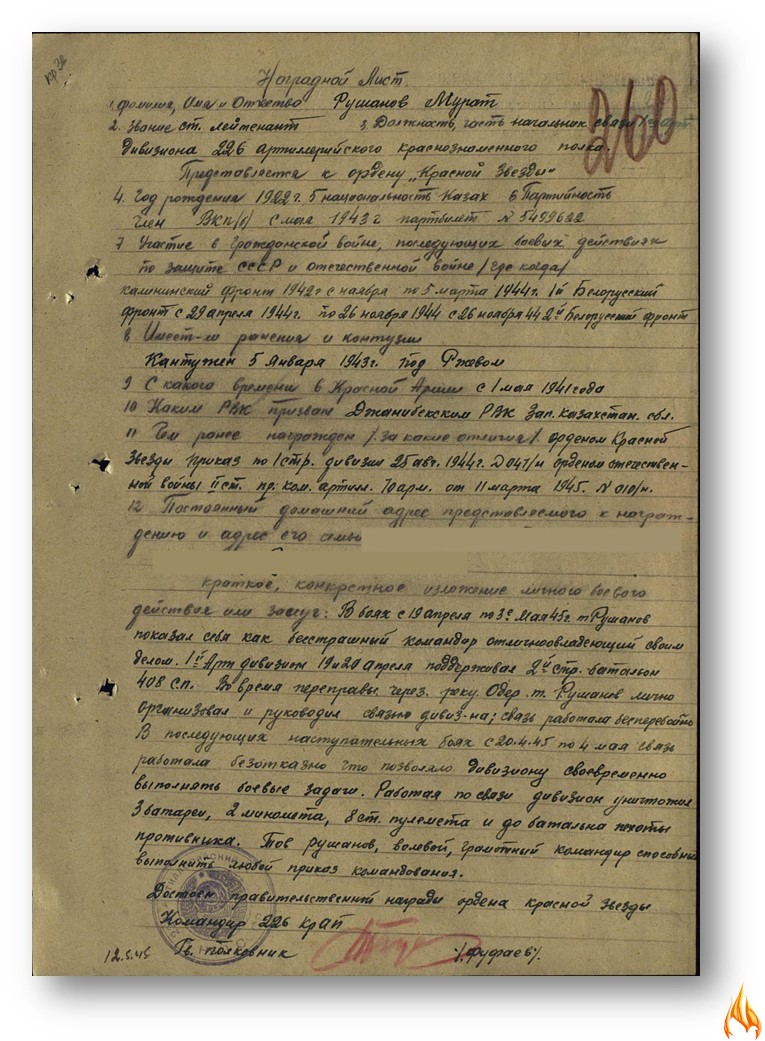 Наградной Лист.
260
1. фамилия, Имя и Отчество Рушанов Мурат
2. Звание ст. лейтенант 3. Должность, часть начальник связи 1 арт
дивизиона 226 артиллерийского краснознаменного полка.
Представляется к ордену „Красной Звезды"
4. Год рождения 1922 г. 5 национальность Казах 6 Партийность
член ВКП/б/ с мая 1943 г партбилет N 5499622
7 Участие в гражданской войне, последующих боевых действиях
по защите СССР и отечественной войне /где когда/
калининский фронт 1942 г с ноября по 5 марта 1944 г. 1й Белорусский
фронт с 29 апреля 1944 г. по 26 ноября 1944 с 26 ноября 44 2й Белорусский фронт
8 Имеет-ли ранения и контузии
Кантужен 5 Января 1943 г. под Ржевом
9 С какого времени в Красной Армии с 1 мая 1941 года
10 Каким РВК призван Джанибекским РВК Зап. Казахстан. обл.
11 Чем ранее награжден /за какие отличия/. орденом Красной
Звезды приказ по 1 стр. дивизии 25 авг. 1944 г. N 047/н орденом отечествен-
ной войны II ст. пр. ком. артил. 70 арм. от 11 марта 1945. N 010/н.
12 Постоянный домашний адрес представляемого к награж-
дению и адрес его семьи
краткое, конкретное изложение личного боевого
действия или заслуг: В боях с 19 апреля по 3е Мая 45 г. т Рушанов
показал себя как бесстрашный командир отличноовладеющий своим
делом. 1й Арт дивизион 19 и 20 апреля поддерживал 2й стр. батальон
408 с.п. Во время переправы через реку Одер т. Рушанов лично
организовал и руководил связью дивиз-на; связь работала бесперебойно
В последующих наступательных боях с 20.4.45 по 4 мая связь
работала безотказно что позволяло дивизиону своевременно
выполнять боевые задачи. Работая по связи дивизион уничтожил
3 батареи, 2 миномета, 8 ст. пулемета и до батальна пехоты
противника. Тов рушанов, волевой, грамотный командир способный
выполнить любой приказ командования.
Достоен правительственной награди ордена красной звезды
Командир 226 КрАП
12.5.45 Гв. полковник /фуфаев/.